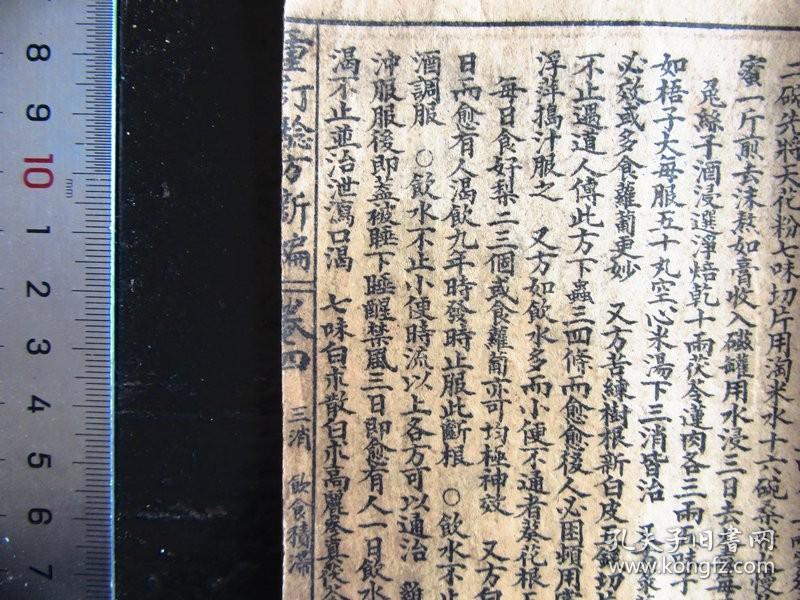 二碗先將天花粉七味切片用淘米水十六碗桑
蜜一斤煎去沫熬如膏收入磁罐用水浸三日去
兎絲子酒浸選淨焙乾十兩茯苓蓮肉各三兩
如梧子大每服五十丸空心米湯下三消皆治
必效或多食蘿蔔更妙　又方苦練樹根新白皮
不止遇道人傳此方下蟲三四條而愈愈後人必困頓用
浮萍搗汁服之　又方如飲水多而小便不通者葵花根
每日食好梨二三個或食蘿蔔亦可均極神效　又方
日而愈有人渴飲九年時發時止服此斷根　○飲水不止
酒調服　○飲水不止小便時流以上各方可以通治
沖服服後即蓋被睡下睡醒禁風三日即愈有人一日飲水
渴不止並治泄瀉口渴　七味白朮散白朮高麗參真茯苓
重訂驗方新編　卷四　三消　飲食積滯
8
9
10
1
2
3
4
5
6
7
mm
孔夫子旧書网
www.kongfz.com